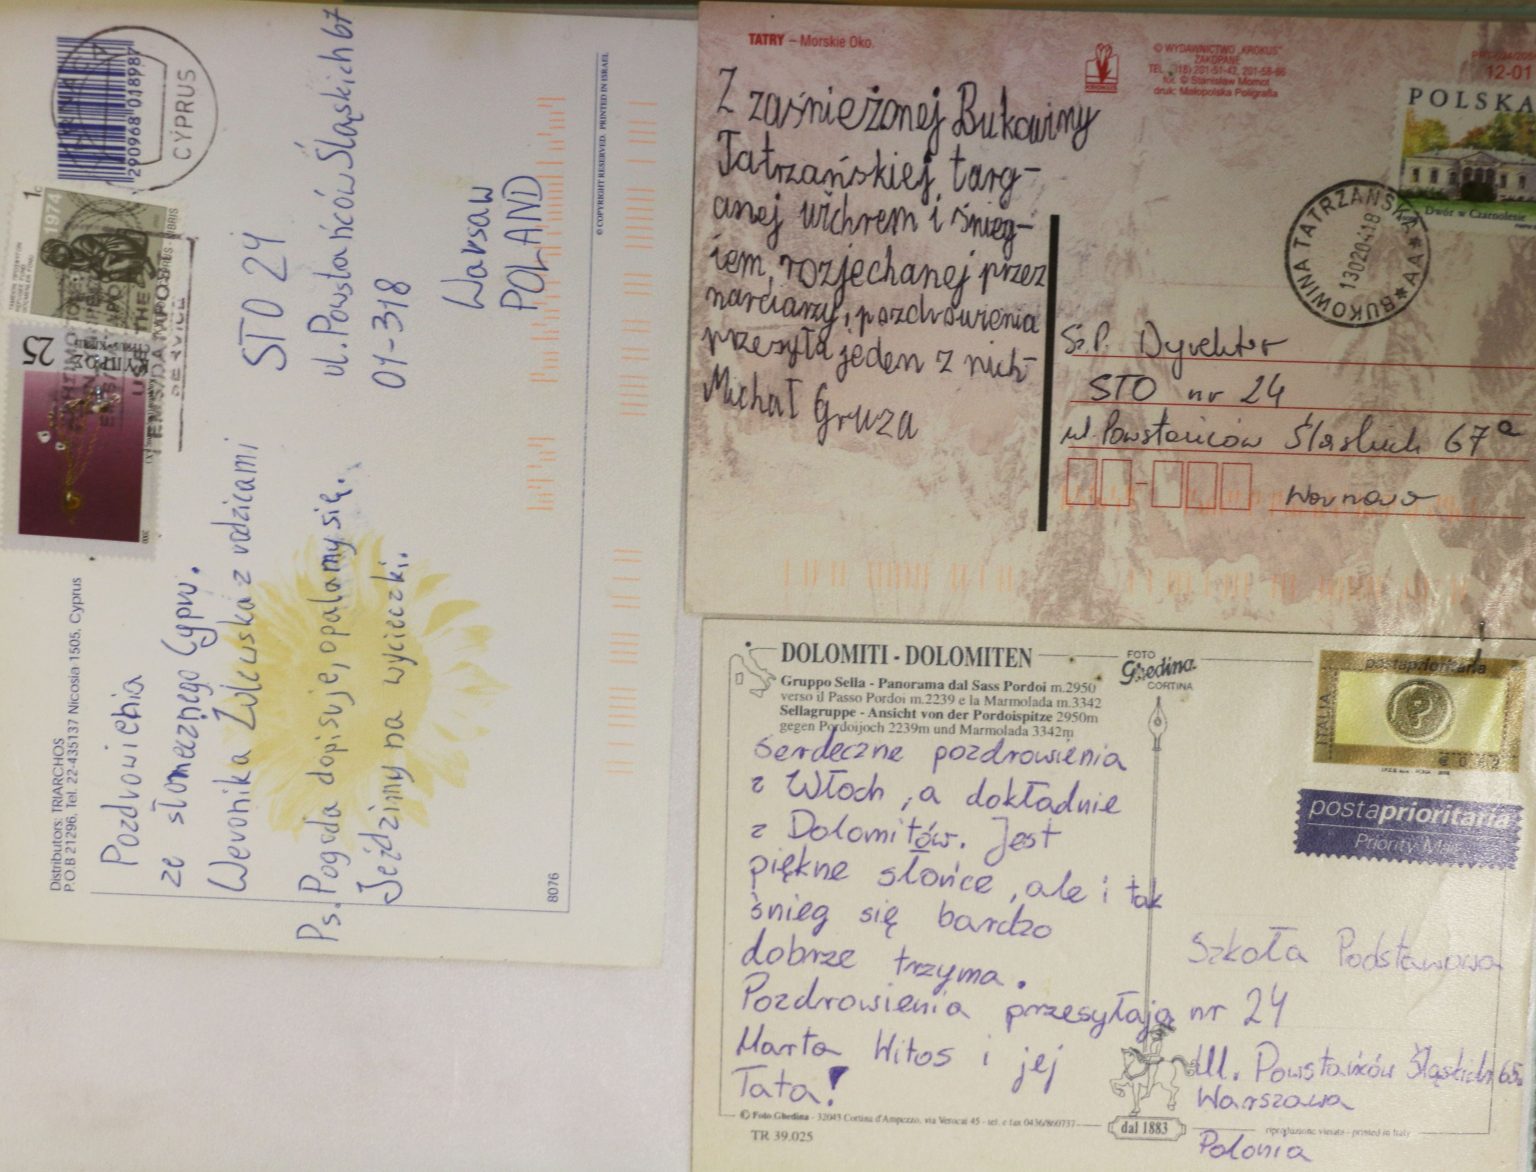 290968 018987
CYPRUS
1974
1c
25
USE THE
EMS/DATAPOST
SERVICE
Distributors: TRIARCHOS
P.O.B 21296, Tel. 22-435137 Nicosia 1505, Cyprus
Pozdrowienia
ze słonecznego Cypru.
Weronika Zulewska z rodzicami
Ps. Pogoda dopisuje, opalamy się.
Jeździmy na wycieczki.
STO 24
ul. Powstańców Śląskich 67
01-318
Warsaw
POLAND
© COPYRIGHT RESERVED. PRINTED IN ISRAEL
8076
TATRY – Morskie Oko.
© WYDAWNICTWO „KROKUS”
ZAKOPANE
TEL. (18) 201-51-42, 201-58-66
fot. © Stanisław Momot
druk: Małopolska Poligrafia
KROKUS
12-01
POLSKA
Dwór w Czarnolesie
BUKOWINA TATRZAŃSKA
Z zaśnieżonej Bukowiny
Tatrzańskiej, targ-
anej wichrem i śnieg-
iem, rozjechanej przez
narciarzy, pozdrowienia
przesyła jeden z nich-
Michał Gruza
Sz.P. Dyrektor
STO nr 24
ul. Powstańców Śląskich 67a
Warszawa
DOLOMITI - DOLOMITEN
Gruppo Sella - Panorama dal Sass Pordoi m.2950
verso il Passo Pordoi m.2239 e la Marmolada m.3342
Sellagruppe - Ansicht von der Pordoispitze 2950m
gegen Pordoijoch 2239m und Marmolada 3342m
FOTO
Ghedina
CORTINA
postaprioritaria
ITALIA
€ 0,62
postaprioritaria
Priority Mail
Serdeczne pozdrowienia
z Włoch, a dokładnie
z Dolomitów. Jest
piękne słońce, ale i tak
śnieg się bardzo
dobrze trzyma.
Pozdrowienia przesyłają
Marta Witos i jej
Tata!
Szkoła Podstawowa
nr 24
Ul. Powstańców Śląskich
Warszawa
Polonia
© Foto Ghedina - 32043 Cortina d'Ampezzo, via Verocai 45 - tel. e fax 0436/860737
TR 39.025
dal 1883
riproduzione vietata - printed in Italy